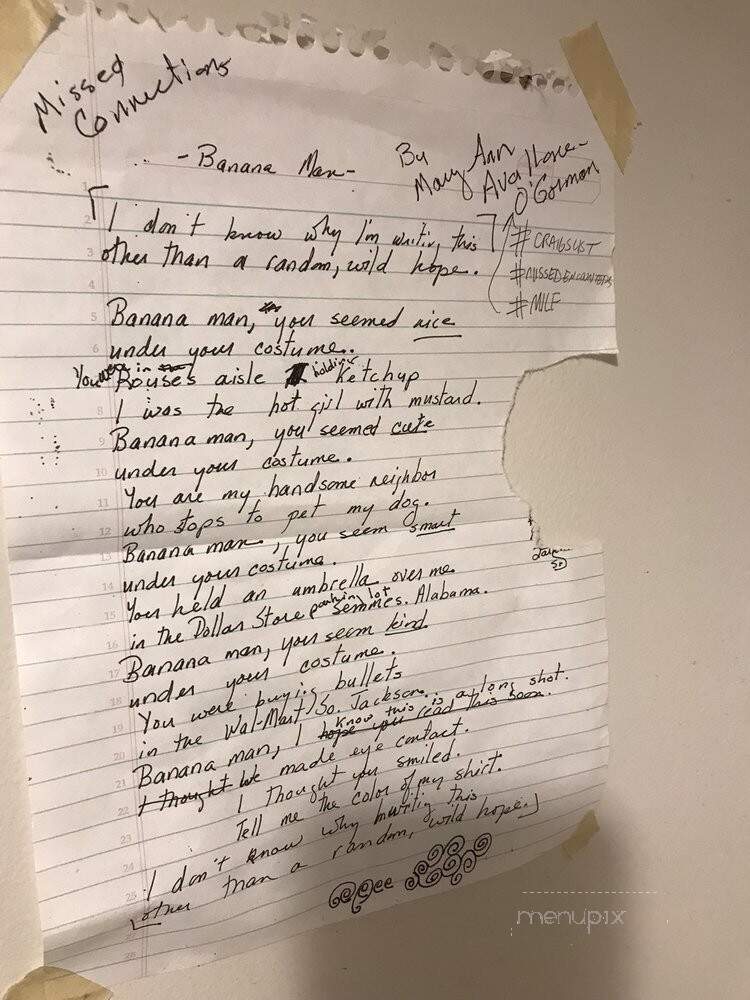 Missed
Connections
- Banana Man -
By
Mary Ann
O'Gorman
I don't know why I'm writing this
other than a random, wild hope.
#CRAIGSLIST
#MISSEDENCOUNTERS
#MILF
Banana man, you seemed nice
under your costume..
You were in Rouses aisle holding Ketchup
I was the hot girl with mustard.
Banana man, you seemed cute
under your costume.
You are my handsome neighbor
who stops to pet my dog.
Banana man, you seem smart
under your costume.
You held an umbrella over me
in the Dollar Store parkin lot Semmes. Alabama.
Banana man, you seem kind
under your costume.
You were buying bullets
in the Wal-Mart / So. Jackson..
Banana man, I know this is a long shot.
hope you read this soon.
I thought We made eye contact.
I thought you smiled.
Tell me the color of my shirt.
I don't know why I'm writing this
other than a random, wild hope.
menupix